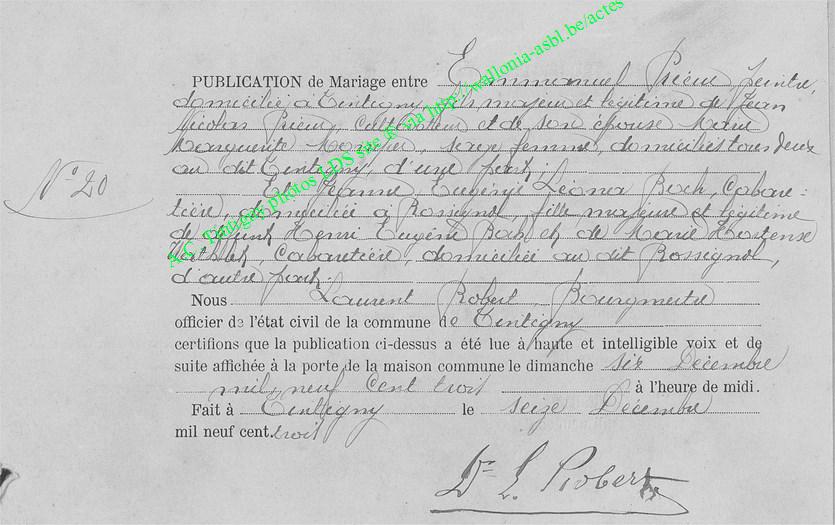 PUBLICATION de Mariage entre Emmanuel Prieur peintre,
domicilié à Tintigny, fils majeur et légitime de Jean
Nicolas Prieur, cultivateur et de son épouse Marie
Marguerite femme, domiciliés tous deux
au dit Tintigny, d'une part;
Et Jeanne Eugénie Léona Boch, Cabare-
tière, domiciliée à Rossignol, fille majeure et légitime
de défunt Henri Eugène Boch et de Marie Hortense
Cabaretière, domiciliée au dit Rossignol,
d'autre part.
N° 20
Nous Laurent Robert, Bourgmestre
officier de l'état civil de la commune de Tintigny
certifions que la publication ci-dessus a été lue à haute et intelligible voix et de
suite affichée à la porte de la maison commune le dimanche six Décembre
mil neuf cent trois à l'heure de midi.
Fait à Tintigny le seize Décembre
mil neuf cent trois
Dr L. Robert
A.C. Tintigny photos LDS site ® via http://wallonia-asbl.be/actes